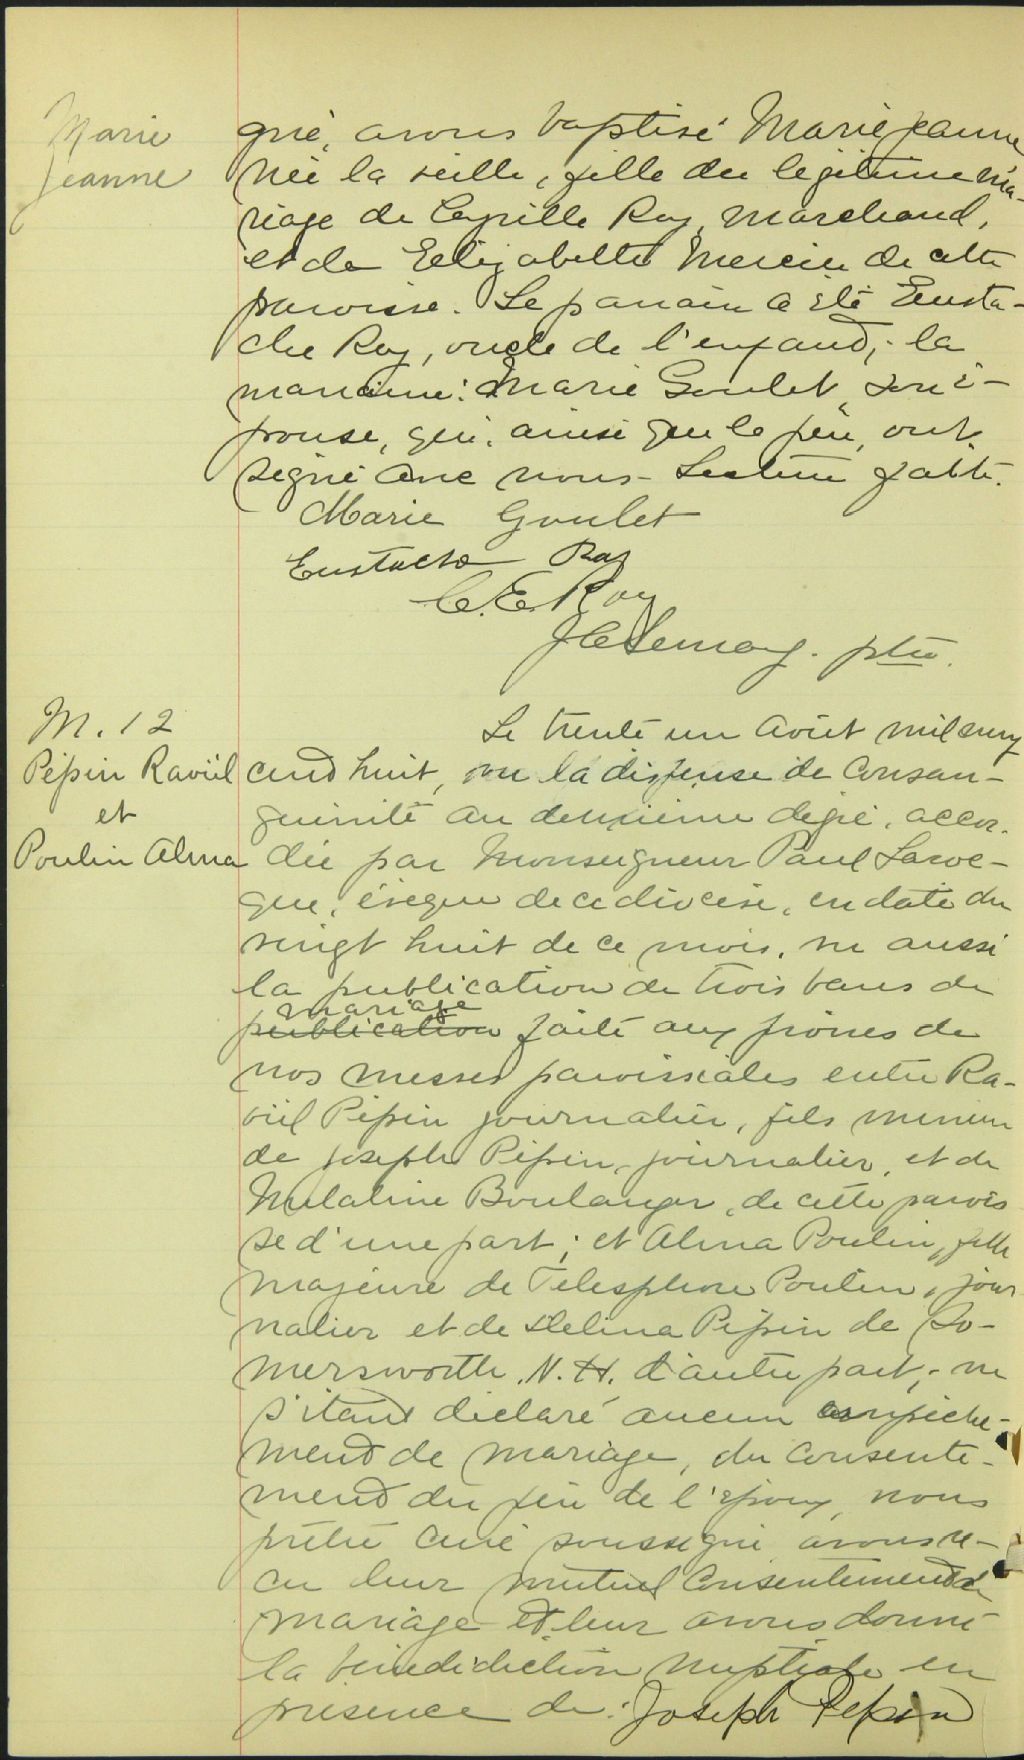 Marie
Jeanne
gné, avons baptisé Marie Jeanne
née la veille, fille du légitime ma-
riage de Cyrille Roy, marchand,
et de Elizabeth Mercier de cette
paroisse. Le parrain a été Eusta-
che Roy, oncle de l'enfand; la
marraine: Marie Goulet, son é-
pouse, qui, ainsi que le père, ont
signé avec nous - Lecture faite.
Marie Goulet
Eustache Roy
C. E. Roy
J C Lemay. ptre.
M. 12
Pépin Raviïl
et
Poulin Alma
Le trente un Août mil neuf
cend huit, vu la dispense de Consan-
guinité au deuxième degré, accor-
dée par Monseigneur Paul Laroc-
que, évèque de ce diocèse, en date du
vingt huit de ce mois, vu aussi
la publication de trois bans de
mariage
publication faite aux prônes de
nos messes paroissiales entre Ra-
viïl Pépin journalier, fils mineur
de Joseph Pépin, journalier, et de
Boulanger, de cette parois
se d'une part; et Alma Poulin, fille
majeure de Télesphore Poulin, jour-
nalier et de Délina Pépin de So-
mersworth, N. H. d'autre part; ne
s'étand déclaré aucun empêche-
mend de mariage, du Consente-
mend du père de l'époux, nous
prêtre curé soussigné avons re-
çu leur mutuel Consentemend de
mariage et leur avons donné
la bénédidiction nuptiale en
présence de: Joseph Pepin